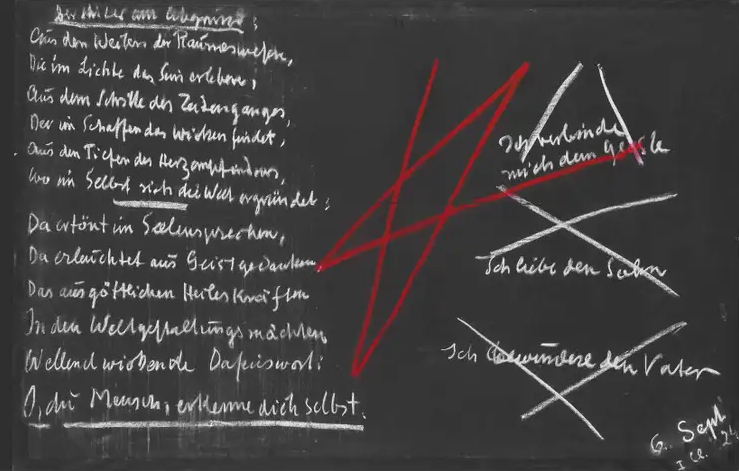 Der Hüter am Abgrund:
Aus den Weiten der Raumeswesen,
Die im Lichte das Sein erleben,
Aus dem Schritte des Zeitenganges,
Der im Schaffen das Wirken findet,
Aus den Tiefen des Herzempfindens,
Wo im Selbst sich die Welt ergründet:
Da ertönt im Seelensprechen,
Da erleuchtet aus Geistgedanken
Das aus göttlichen Heileskräften
In den Weltgestaltungsmächten
Wellend wirkende Daseinswort:
O, du Mensch, erkenne dich selbst.
Ich verbinde
mich dem Geiste
Ich liebe den Sohn
Ich bewundere den Vater
6. Sept